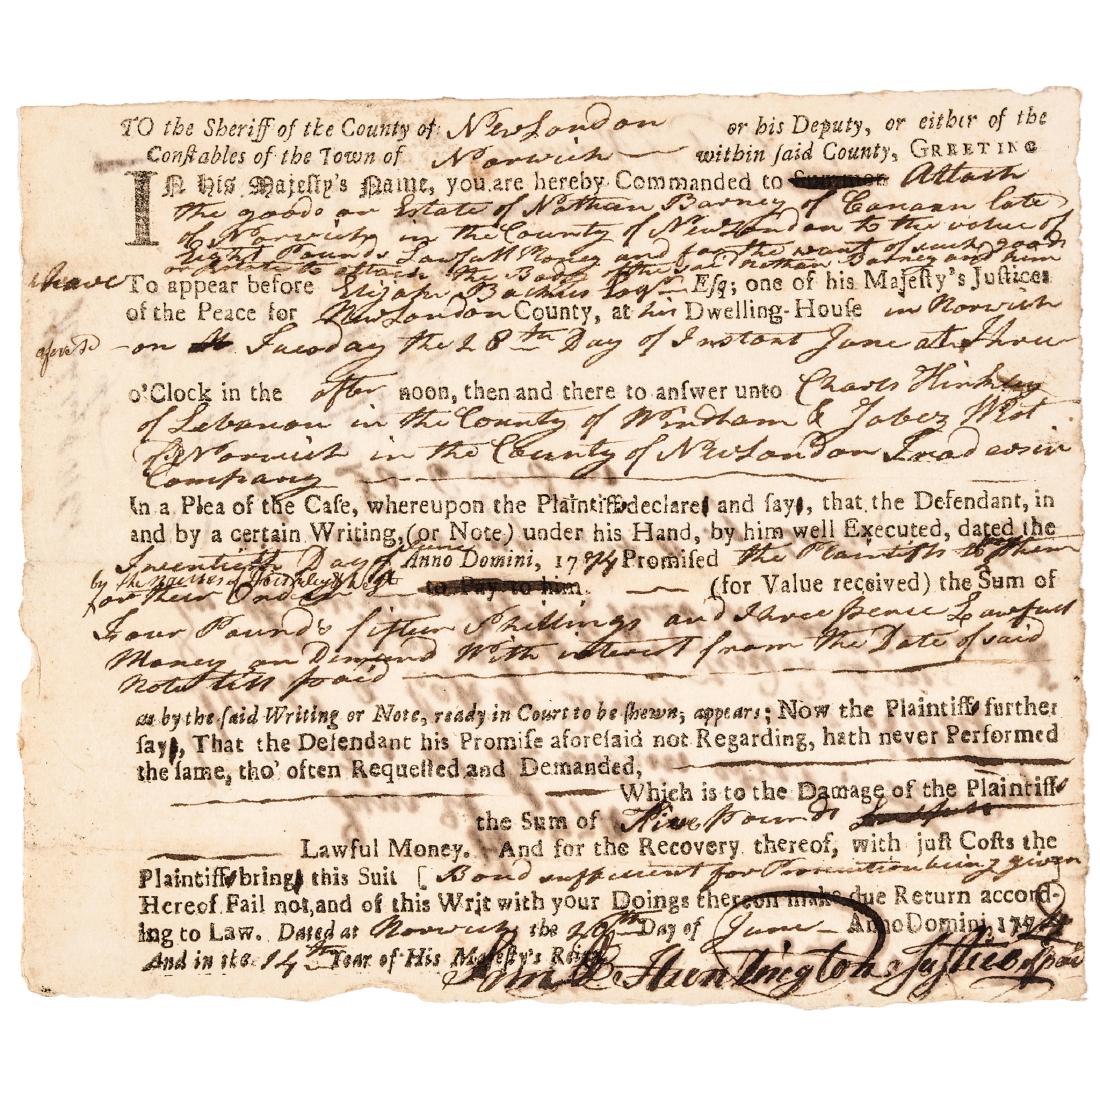 TO the Sheriff of the County of New London or his Deputy, or either of the
Constables of the Town of Norwich within said County, GREETING
IN His Majesty's Name, you are hereby Commanded to Attach
the goods or Estate of Nathan Barney of Canaan late
of Norwich in the County of New London to the value of
Eight Pounds Lawfull Money and for the want of such goods
or Estate to attach the Body of the sd Nathan Barney and him
have To appear before Elijah Backus Esqr Esq; one of his Majesty's Justices
of the Peace for New London County, at his Dwelling-House in Norwich
on Tuesday the 28th Day of Instant June at three
o'Clock in the after noon, then and there to answer unto Charls Hinkley
of Lebanon in the County of Windham & Jabez West
of Norwich in the County of New London Trad
Company
In a Plea of the Case, whereupon the Plaintiffs declare and say, that the Defendant, in
and by a certain Writing, (or Note) under his Hand, by him well Executed, dated the
Twentieth Day of June Anno Domini, 1774 Promised the Plaintiffs to them
by the names of Hinkley & West
or their Order to Pay to him (for Value received) the Sum of
Four Pounds fifteen Shillings and three pence Lawfull
Money on Demend With interest from the Date of said
Note till paid
as by the said Writing or Note, ready in Court to be shewn, appears; Now the Plaintiffs further
say, That the Defendant his Promise aforesaid not Regarding, hath never Performed
the same, tho' often Requested and Demanded,
Which is to the Damage of the Plaintiffs
the Sum of Five Pounds
Lawful Money. And for the Recovery thereof, with just Costs the
Plaintiffs bring this Suit [Bond sufficient for Prosecution being given
Hereof Fail not, and of this Writ with your Doings thereon make due Return accord-
ing to Law. Dated at Norwich the 20th Day of June Anno Domini, 1774
And in the 14th Year of His Majesty's Reign
Saml Huntington Justice of peace